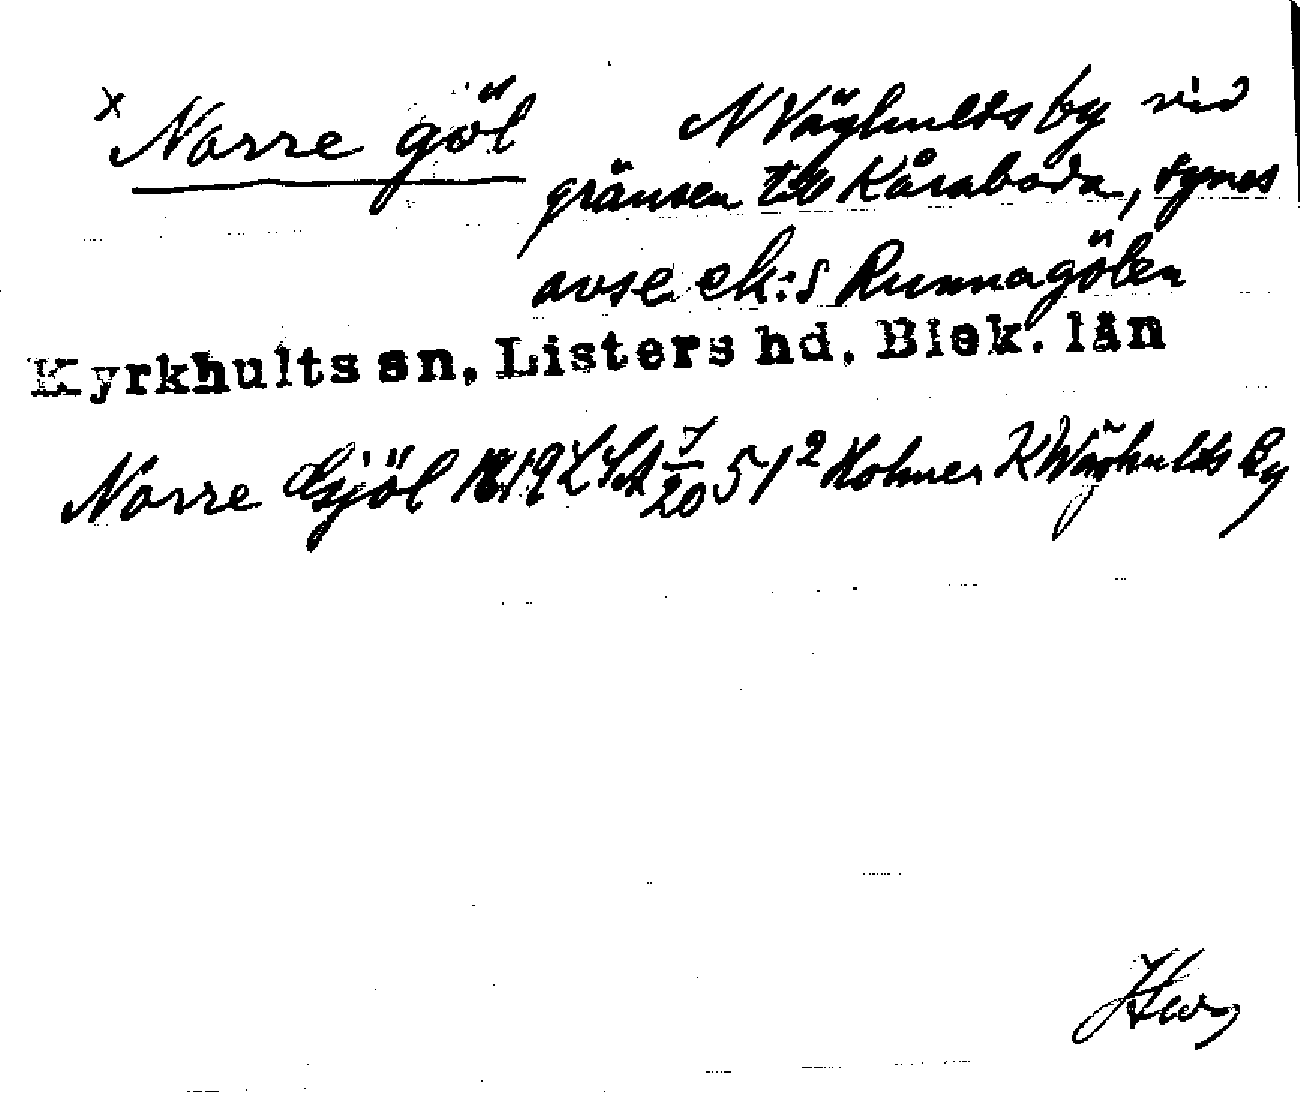 x Norre göl N Väghults by vid
gränsen till Kåraboda, synes
avse ek:s Runnagölen
Kyrkhults sn, Listers hd. Blek. län
Norre Gjöl 1819 LSA 7/20 51² Holmer K Wäghults By